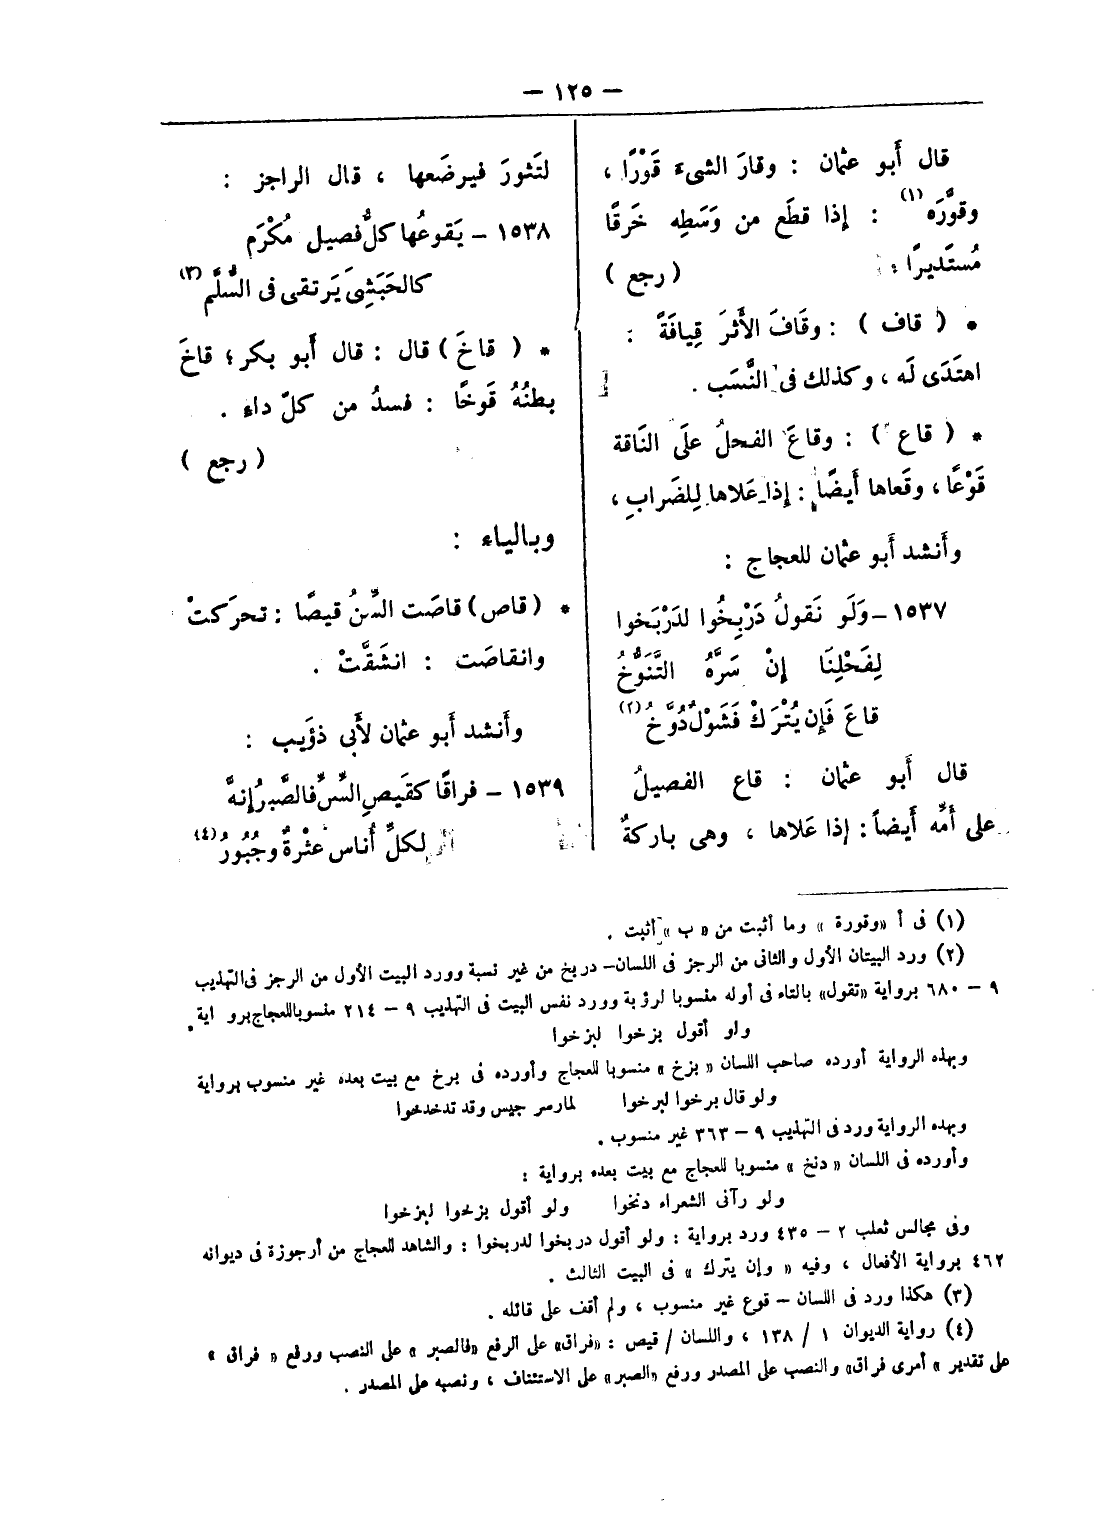 — ١٢٥ —
قال أَبو عثمان : وقارَ الشىءَ قَوْرًا ،
وقوَّرَه (١) : إذا قطَع من وَسَطِه خَرقًا
مُستَديرًا . ( رجع )
• ( قاف ) : وقَافَ الأَثرَ قِيافَةً :
اهتَدَى لَه ، وكذلك فى النَّسَب .
* ( قاع ) : وقاعَ الفحلُ علَى النَاقة
قَوْعًا ، وقَعاها أَيضًا : إذا عَلاها لِلضَرابِ ،
وأَنشد أَبو عثمان للعجاج :
١٥٣٧ – وَلَو نَقولُ دَرْبِخُوا لدَرْبَخوا
لِفَحْلِنَا إنْ سَرَّهُ التَّنَوُّخُ
قاعَ فَإِن يُتْرَكْ فَشَوْلٌ دُوَّخُ (٢)
قال أَبو عثمان : قاع الفصيلُ
على أُمِّه أَيضاً : إذا عَلاها ، وهى باركةٌ
لتَثورَ فيرضَعها ، قال الراجز :
١٥٣٨ – يَقوعُها كلُّ فصيل مُكْرَم
كالحَبَشِىِّ يَرتقى فى السُّلَّم (٣)
* ( قاخَ ) قال : قال أَبو بكر ؛ قاخَ
بطنُهُ قَوخًا : فسدُ من كلّ داءِ .
( رجع )
وبالياء :
* ( قاص ) قاصَت السِّنُ قيصًا : تحرَكتْ
وانقاصَت : انشَقَّتْ .
وأَنشد أَبو عثمان لأَبى ذؤَيب :
١٥٣٩ – فراقًا كقَيصِ السِّنِّ فالصَّبرُ إنهَّ
لكلِّ أُناس عثْرةٌ وجُبُورُ (٤)
(١) فى أ «وقورة » وما أثبت من « ب » أثبت .
(٢) ورد البيتان الأول والثانى من الرجز فى اللسان – دربخ من غير نسبة وورد البيت الأول من الرجز فى التهذيب
٩ – ٦٨٠ برواية «تقول» بالتاء فى أوله منسوبا لرؤبة وورد نفس البيت فى التهذيب ٩ – ٢١٤ منسوباللعجاج برواية .
ولو أقول بزخوا لبزخوا
وبهذه الرواية أورده صاحب اللسان « بزخ » منسوبا للعجاج وأورده فى برخ مع بيت بعده غير منسوب برواية
ولو قال برخوا لبرخوا لمارسر جيس وقد تدخدخوا
وبهذه الرواية ورد فى التهذيب ٩ – ٣٦٣ غير منسوب .
وأورده فى اللسان « دنخ » منسوبا للعجاج مع بيت بعده برواية :
ولو رآنى الشعراء دنخوا ولو أقول بزخوا لبزخوا
وفى مجالس ثعلب ٢ – ٤٣٥ ورد برواية : ولو أقول دربخوا لدربخوا : والشاهد للعجاج من أرجوزة فى ديوانه
٤٦٢ برواية الأفعال ، وفيه « وإن يترك » فى البيت الثالث .
(٣) هكذا ورد فى اللسان – قوع غير منسوب ، ولم أقف على قائله .
(٤) رواية الديوان ١ / ١٣٨ ، واللسان / قيص : «فراق» على الرفع «فالصبر » على النصب ورفع « فراق »
على تقدير » أمرى فراق» والنصب على المصدر ورفع «الصبر» على الاستئناف ، ونصبه على المصدر .